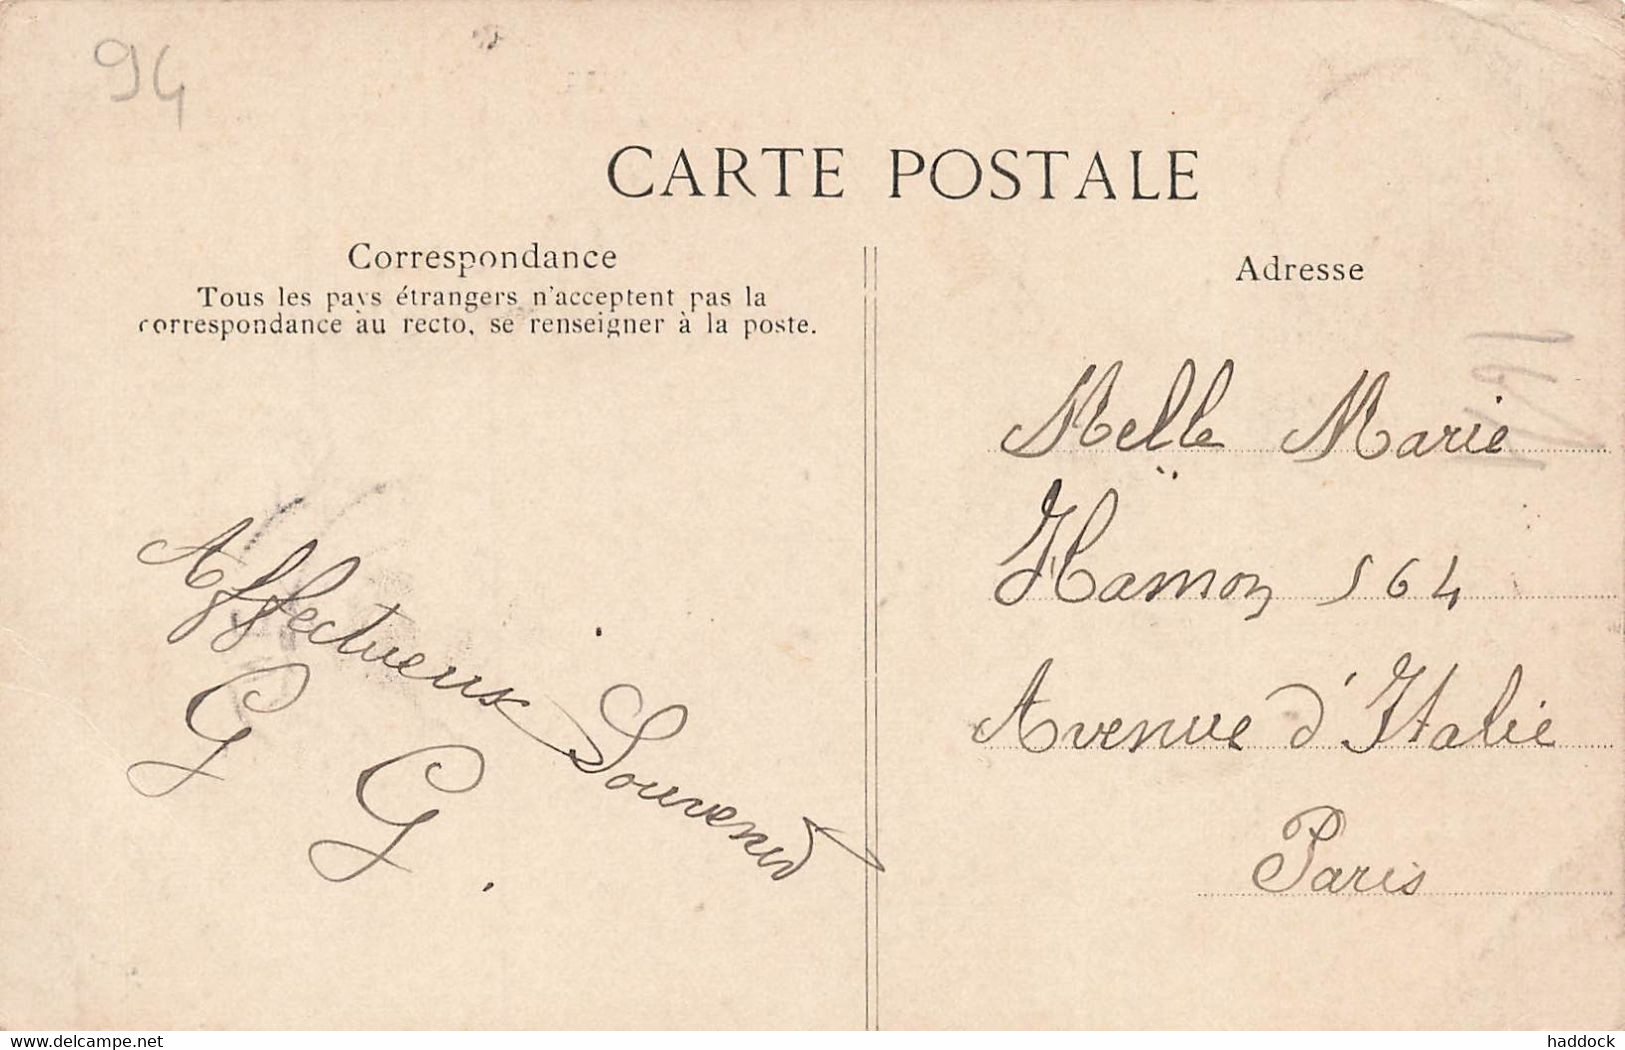 94
CARTE POSTALE
Correspondance
Tous les pays étrangers n'acceptent pas la
correspondance au recto, se renseigner à la poste.
Affectueux Souvenir
G G.
Adresse
Melle Marie
Hamon 164
Avenue d'Italie
Paris
www.delcampe.net
haddock